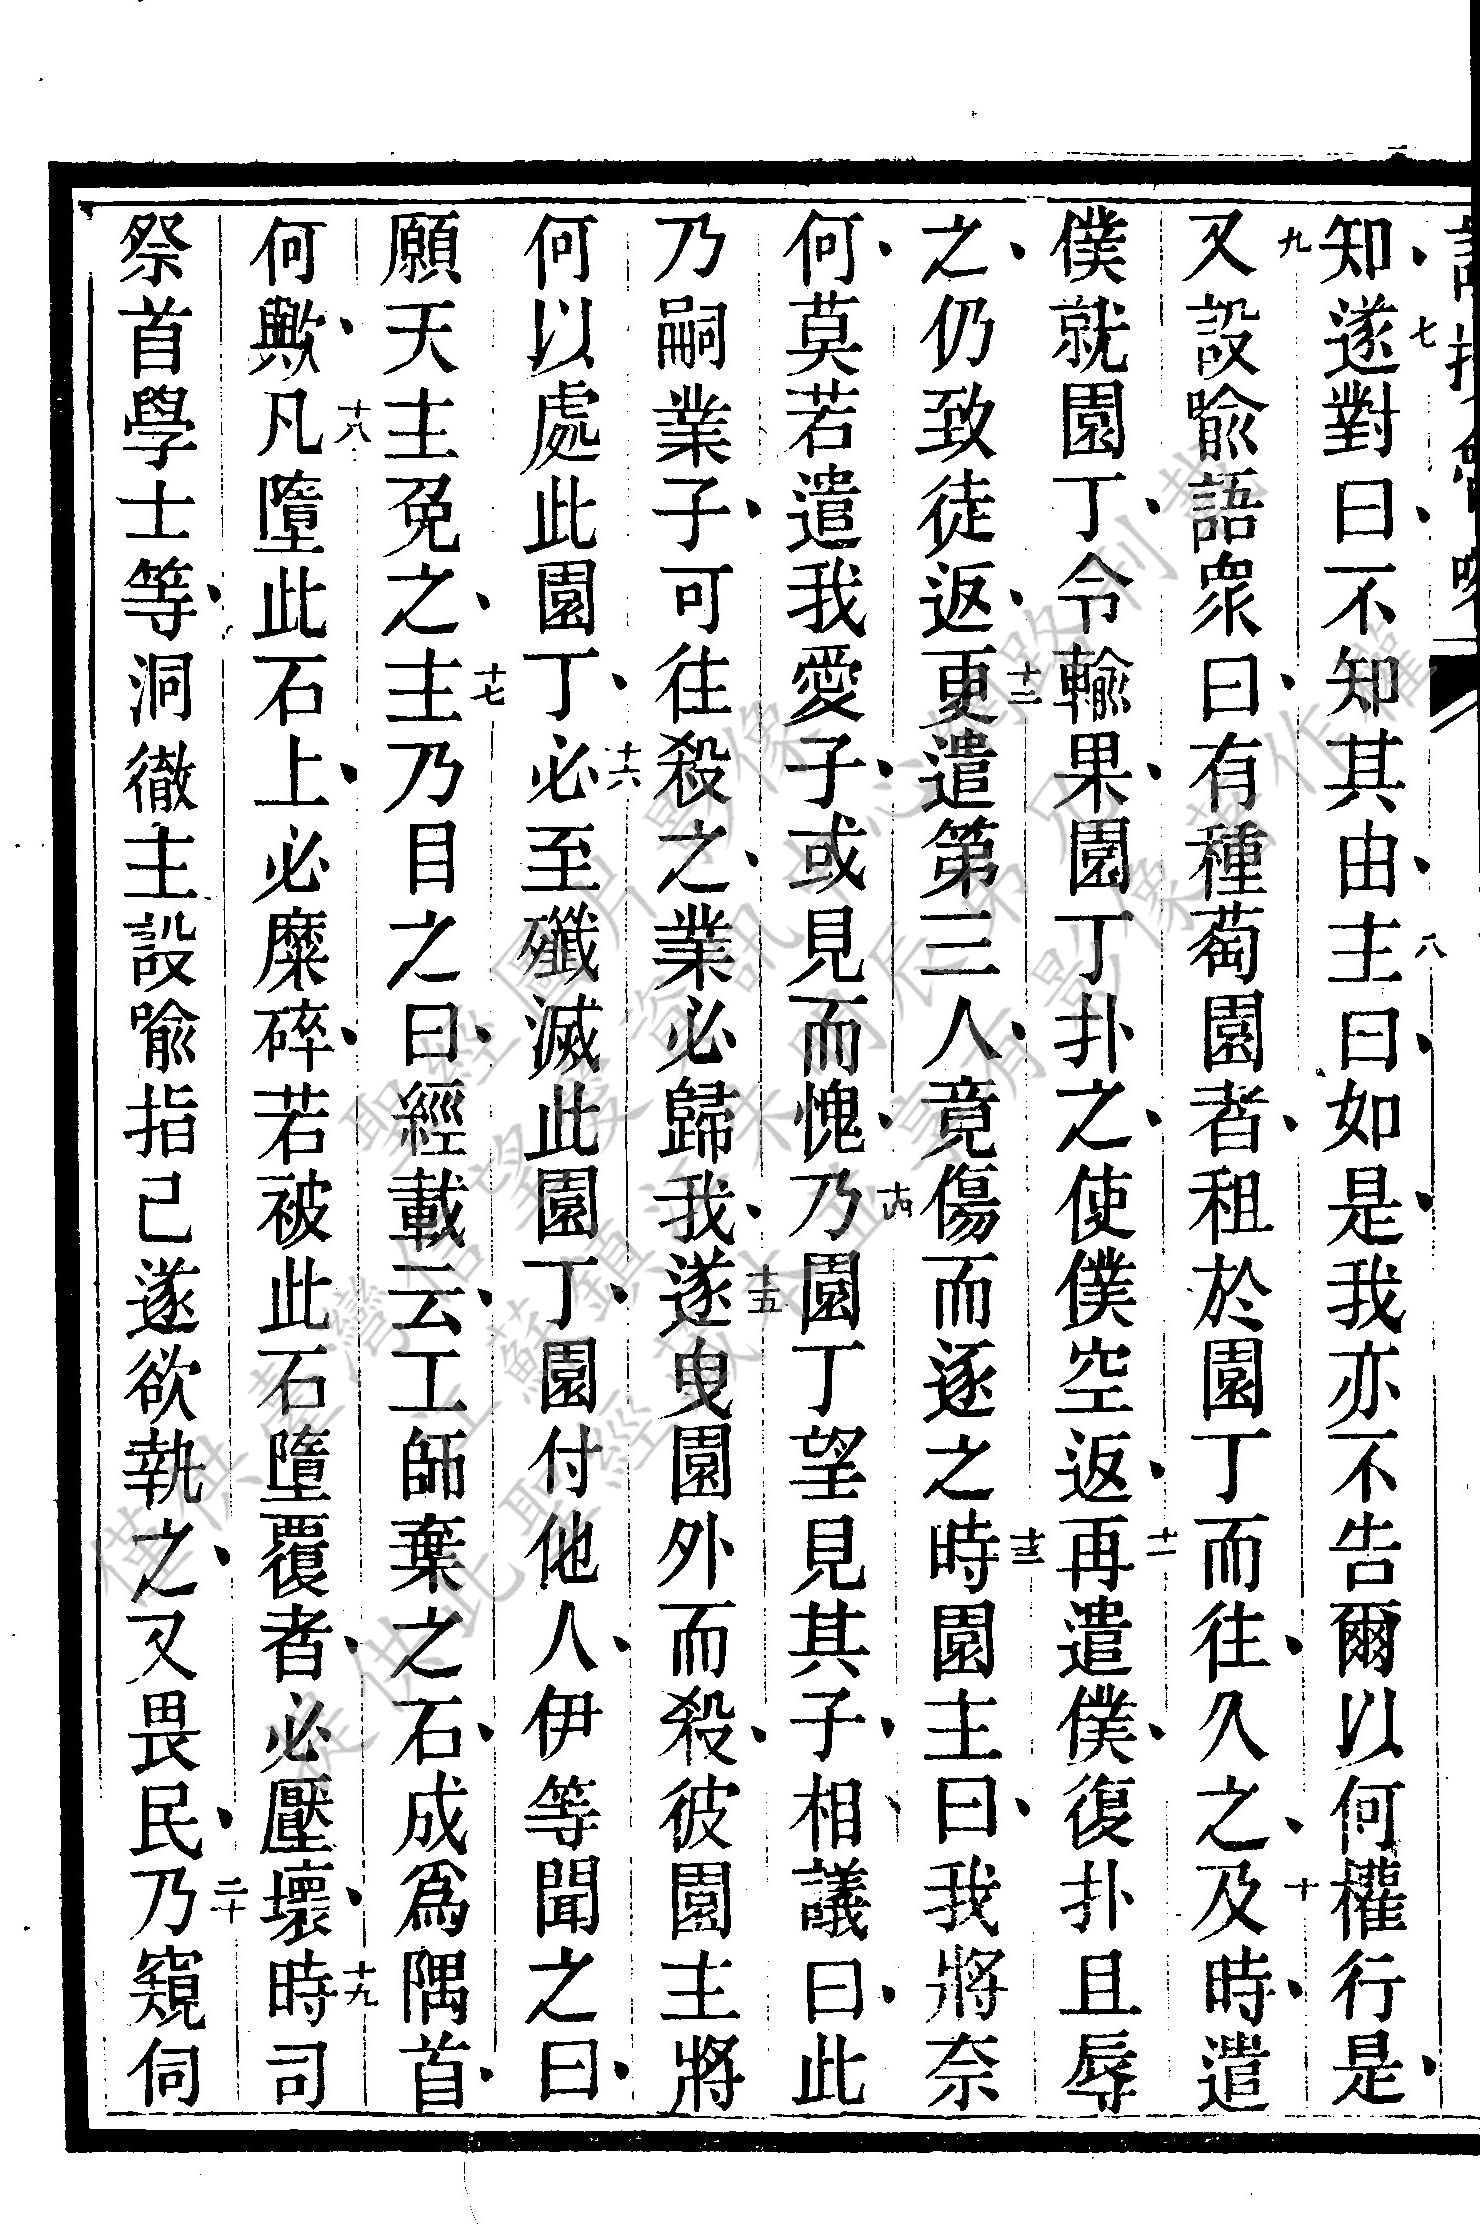 知、七遂對曰、不知其由、八主曰、如是、我亦不告爾以何權行是、
九又設喻語眾曰、有種萄園者、租於園丁而往、久之、十及時、遣
僕就園丁、令輸果、園丁扑之、使僕空返、十一再遣僕、復扑且辱
之、仍致徒返、十二更遣第三人、竟傷而逐之、十三時園主曰、我將奈
何、莫若遣我愛子、或見而愧、十四乃園丁望見其子、相議曰、此
乃嗣業子、可往殺之、業必歸我、十五遂曳園外而殺、彼園主將
何以處此園丁、十六必至殲滅此園丁、園付他人、伊等聞之曰、
願天主免之、十七主乃目之曰、經載云、工師棄之石、成爲隅首、
何歟、十八凡墮此石上、必糜碎、若被此石墮覆者、必壓壞、十九時司
祭首學士等、洞徹主設喻指己、遂欲執之、又畏民、二十乃窺伺
僅供臺灣信望愛資訊
聖經圖片影像